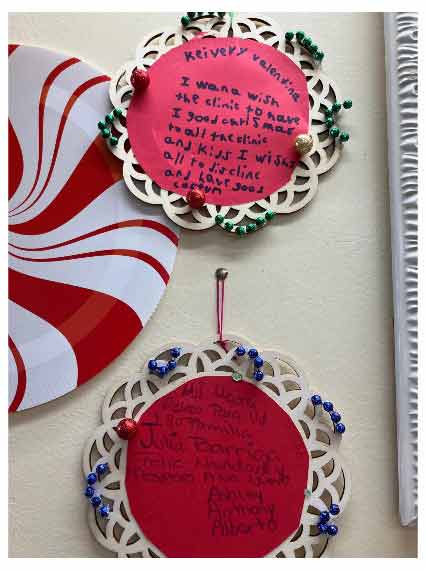 Keivery valentine
I wana wish
the clinic to have
I good chrismas
to all the clinic
and Kids I wish
all to discline
and love good
Mis
para Ud
y su familia
Julia Barriga
Ashley
Anthony
Alberto